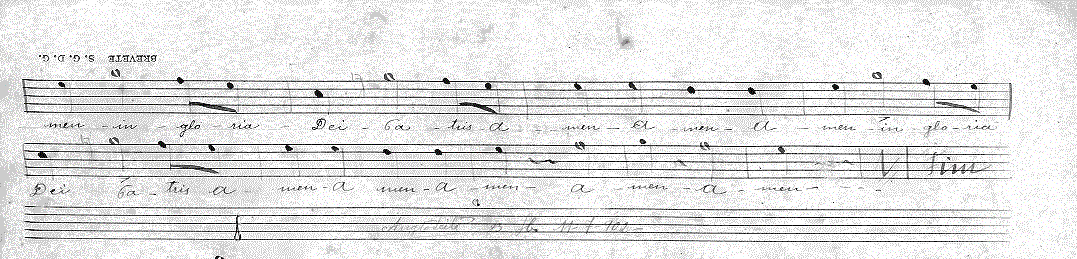 BREVETE S. G. D. G.
men - in - glo - ria - Dei - Pa - tris A - - men - A - men - A - men - in - glo - ria
Dei Pa - tris a - men - a - men - a - men - a - men - a - men - - - -
Fin